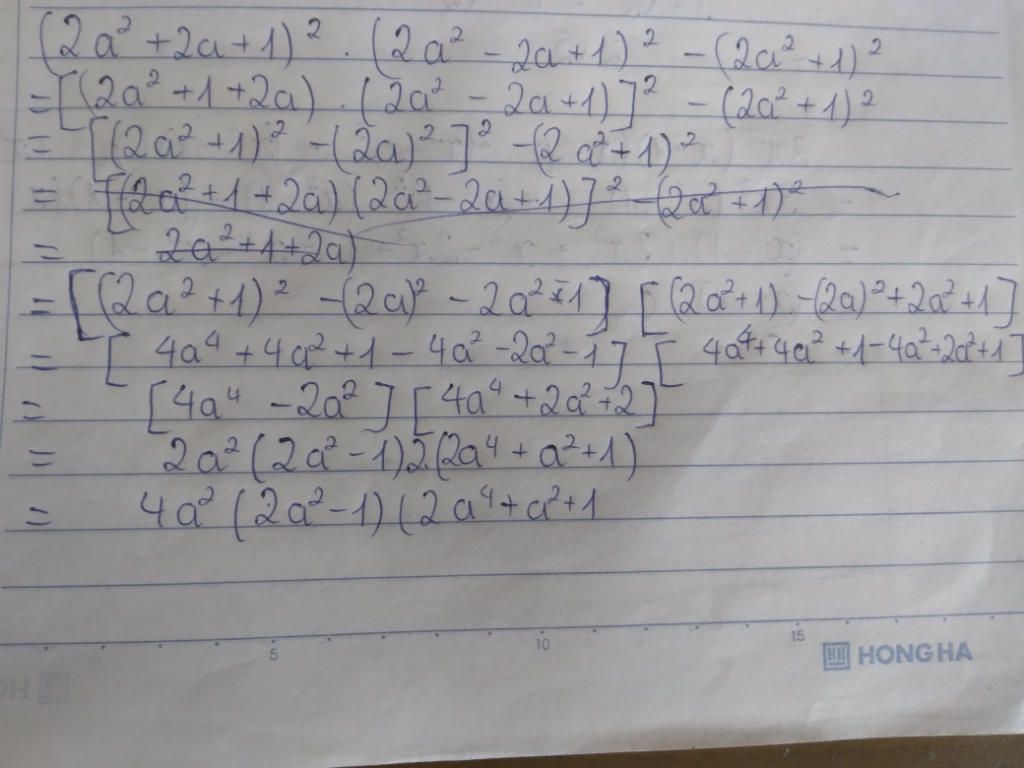 (2a² + 2a + 1)² . (2a² - 2a + 1)² - (2a² + 1)²
= [(2a² + 1 + 2a) . (2a² - 2a + 1)]² - (2a² + 1)²
= [(2a² + 1)² - (2a)²]² - (2a² + 1)²
= [(2a² + 1 + 2a)(2a² - 2a + 1)]² - (2a² + 1)²
= 2a² + 1 + 2a)
= [(2a² + 1)² - (2a)² - 2a² - 1] [(2a² + 1) - (2a)² + 2a² + 1]
= [4a⁴ + 4a² + 1 - 4a² - 2a² - 1] [4a⁴ + 4a² + 1 - 4a² + 2a² + 1]
= [4a⁴ - 2a²] [4a⁴ + 2a² + 2]
= 2a² (2a² - 1) 2.(2a⁴ + a² + 1)
= 4a² (2a² - 1) (2a⁴ + a² + 1
5 10 15
HONG HA